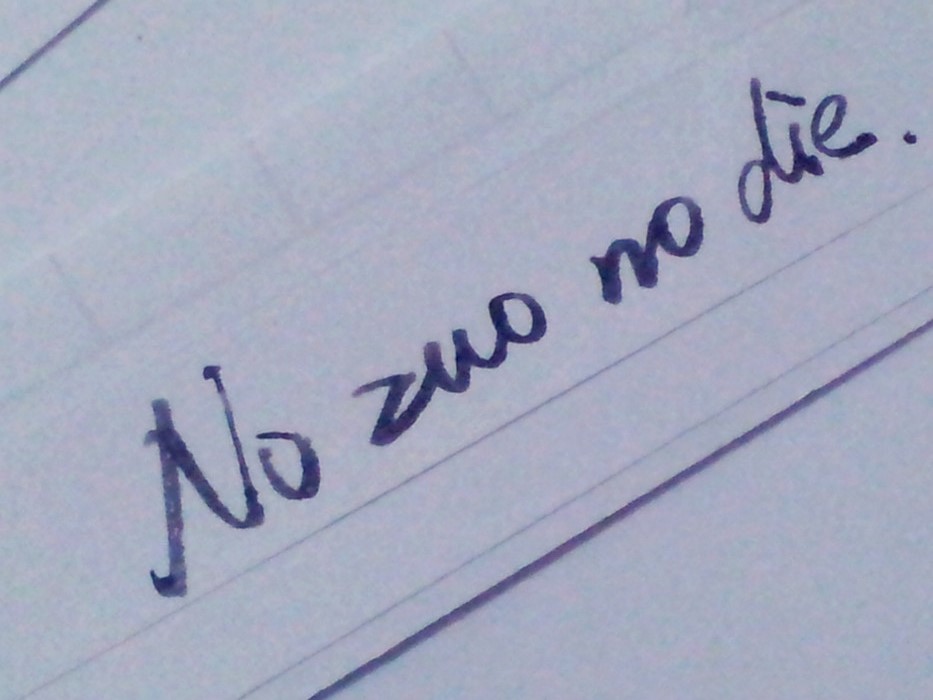 No zuo no die.